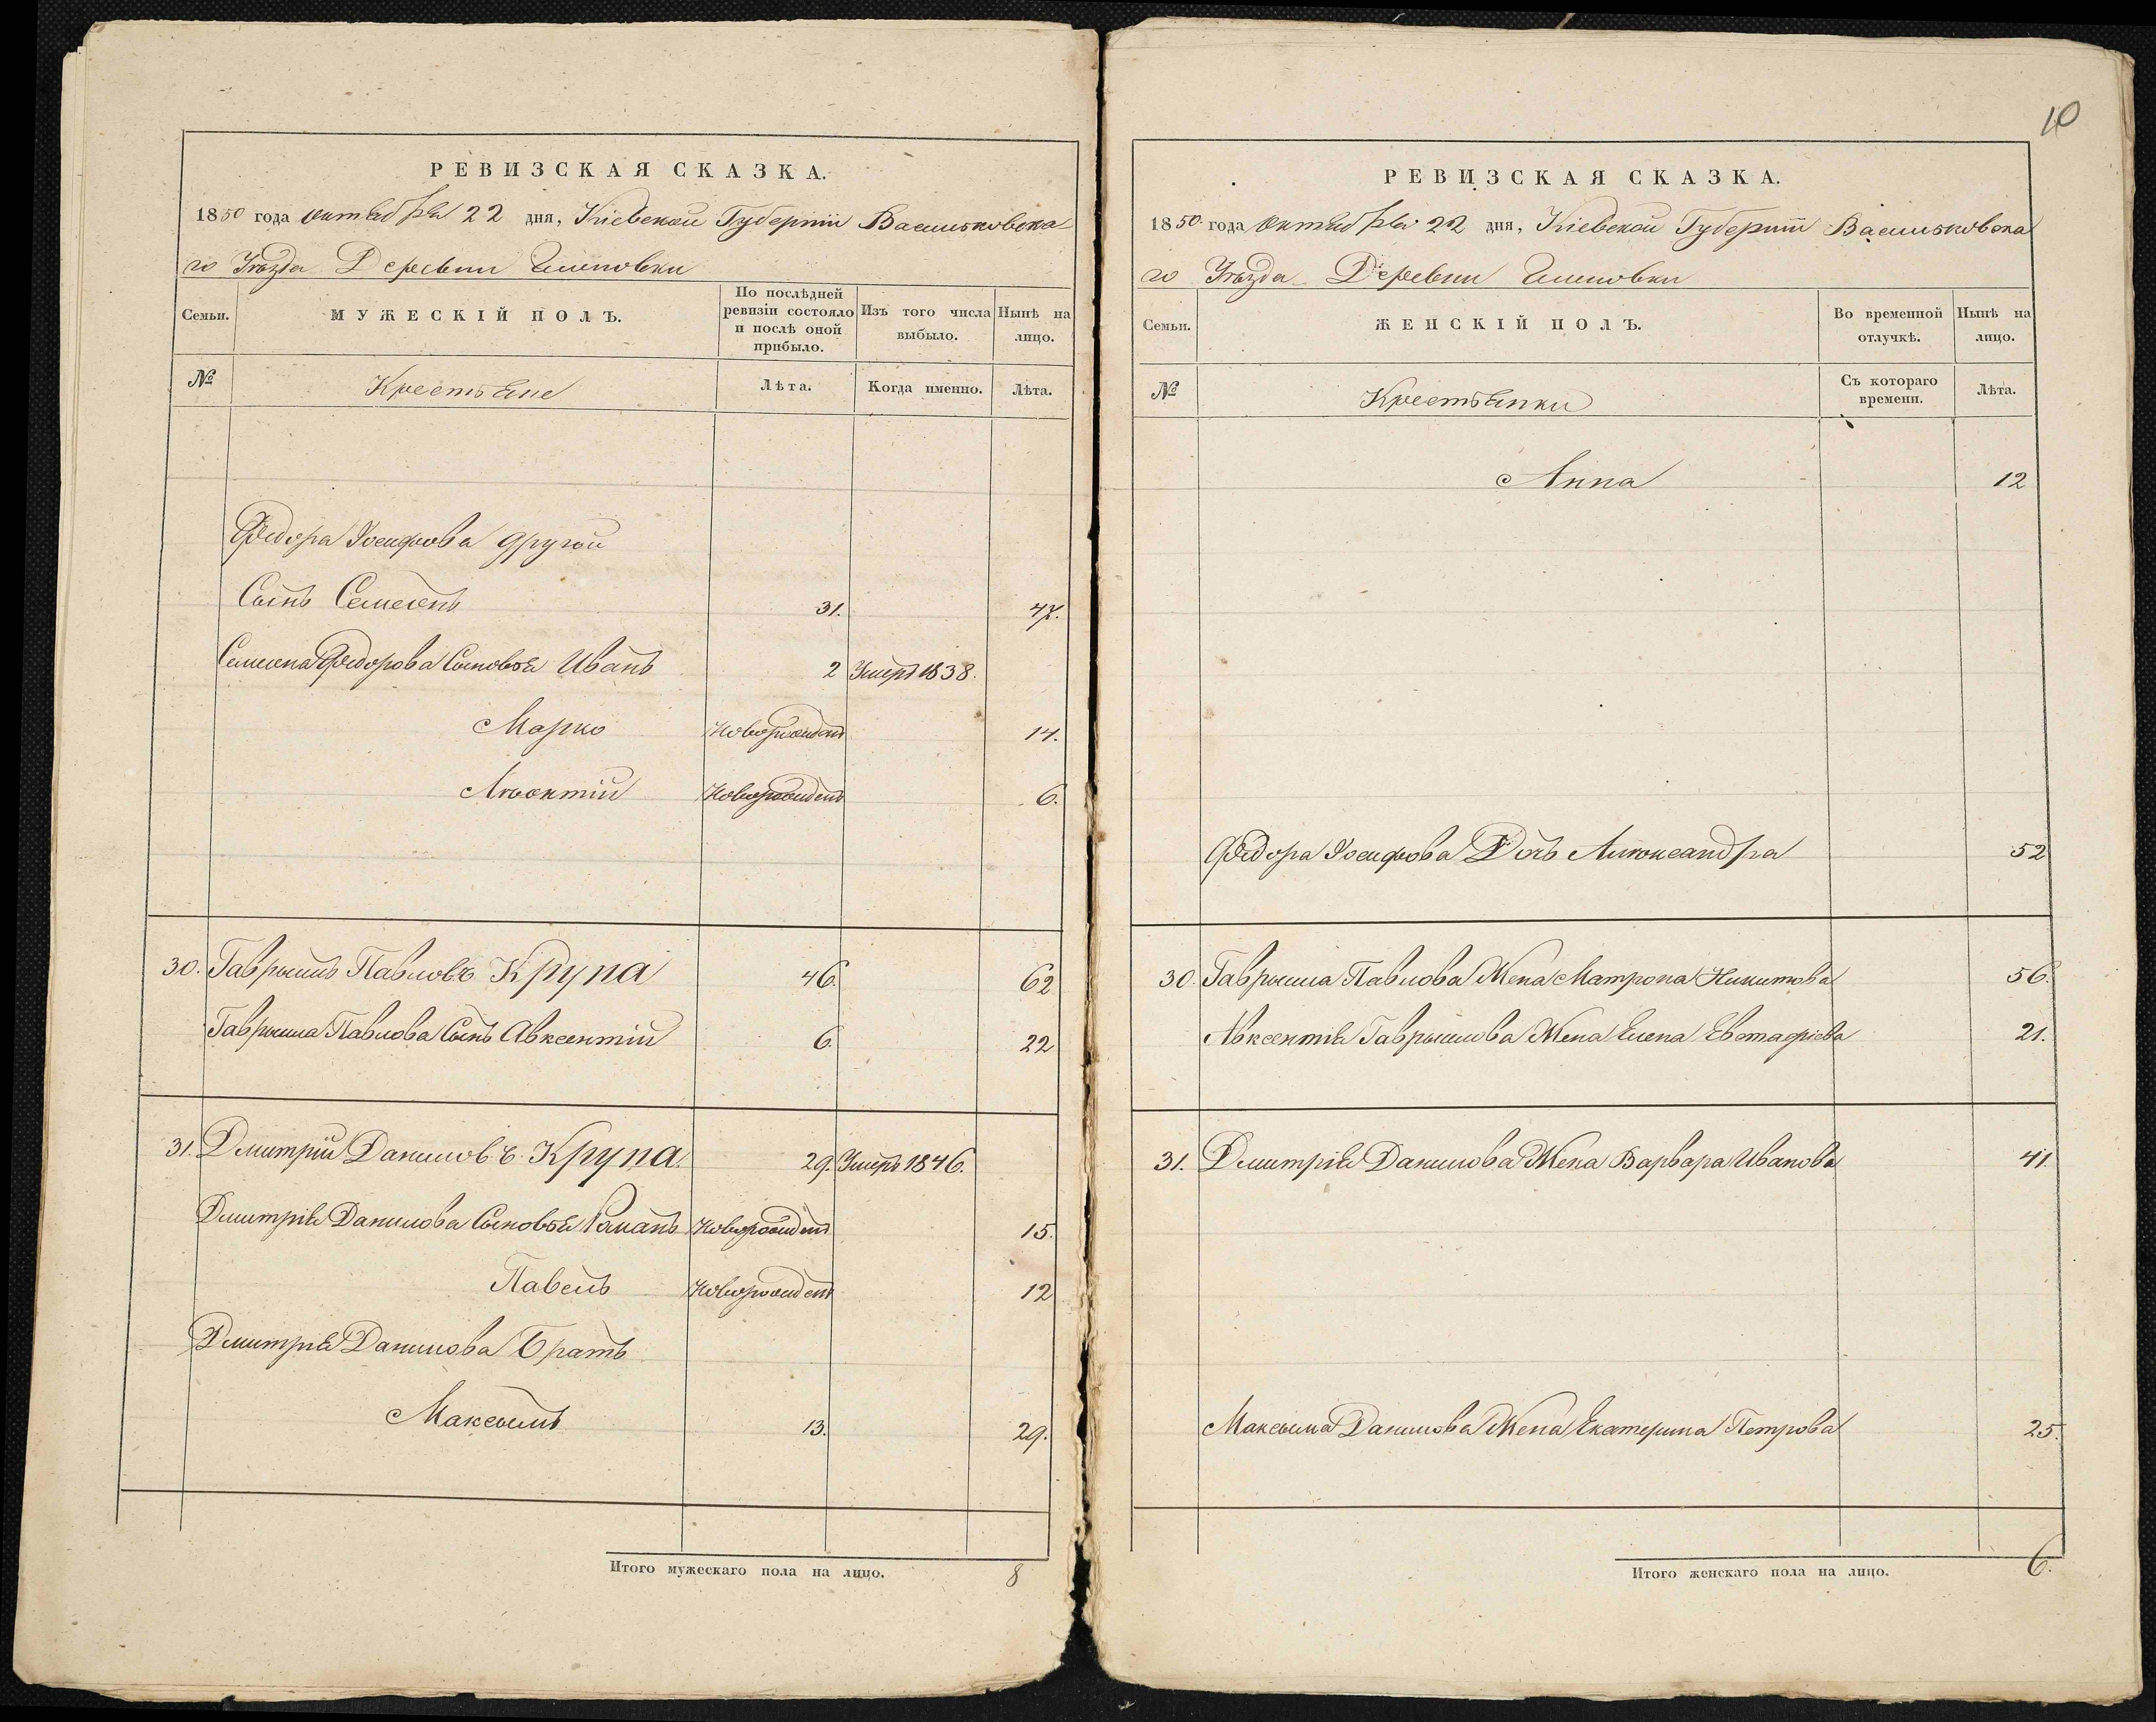 РЕВИЗСКАЯ СКАЗКА.
1850 года октября 22 дня, Кіевской Губерніи Васильковска-
го Уѣзда Деревни
Семьи.
МУЖЕСКІЙ ПОЛЪ.
По послѣдней ревизіи состояло и послѣ оной прибыло.
Изъ того числа выбыло.
Нынѣ на лицо.
№
Крестьяне
Лѣта.
Когда именно.
Лѣта.
Федора Іосифова другой
Сынъ Семенъ 31. 47.
Семена Федорова Сыновья Иванъ 2 Умеръ 1838.
Марко Новорожденъ 14.
Новорожденъ 6.
30. Гаврыилъ Павловъ Крупа 46. 62
Гаврыила Павлова Сынъ Авксентій 6. 22
31. Дмитрій Даниловъ Крупа. 29. Умеръ 1846.
Дмитрія Данилова Сыновья Романъ Новорожденъ 15.
Павелъ Новорожденъ 12
Дмитрія Данилова Братъ
Максымъ 13. 29.
Итого мужескаго пола на лицо. 8
10
РЕВИЗСКАЯ СКАЗКА.
1850. года Октября 22 дня, Кіевской Губерніи Васильковска
го Уѣзда Деревни
Семьи.
ЖЕНСКІЙ ПОЛЪ.
Во временной отлучкѣ.
Нынѣ на лицо.
№
Крестьянки
Съ котораго времени.
Лѣта.
Анна 12
Федора Іосифова Дочь Александра 52
30. Гаврыила Павлова Жена Матрона Никитова 56.
Авксентія Гаврыилова Жена Елена Евстафіева 21.
31. Дмитрія Данилова Жена Варвара Иванова 41.
Максыма Данилова Жена Екатерина Петрова 25.
Итого женскаго пола на лицо. 6.